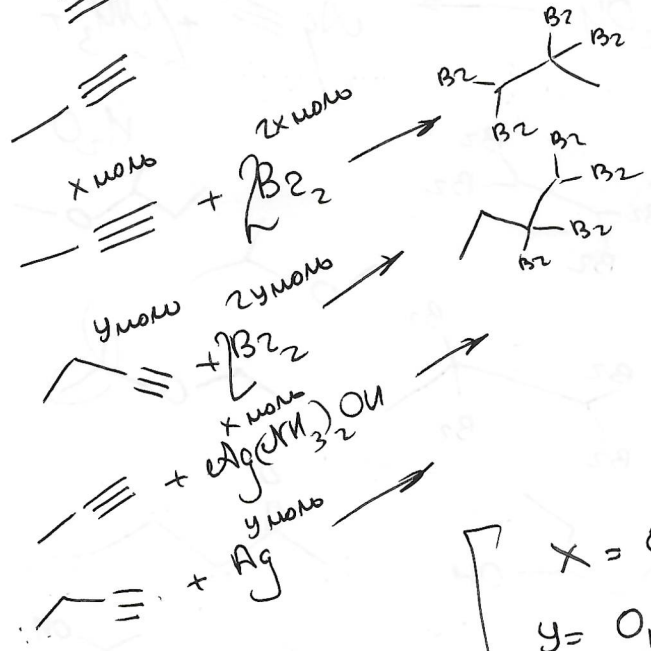 Br Br
Br
2x моль
Br
x моль
+ 2Br₂
Br
Br
2y моль
Br
Br
y моль
+ 2Br₂
x моль
+ Ag(NH₃)₂OH
y моль
+ Ag
x =
y = 0,